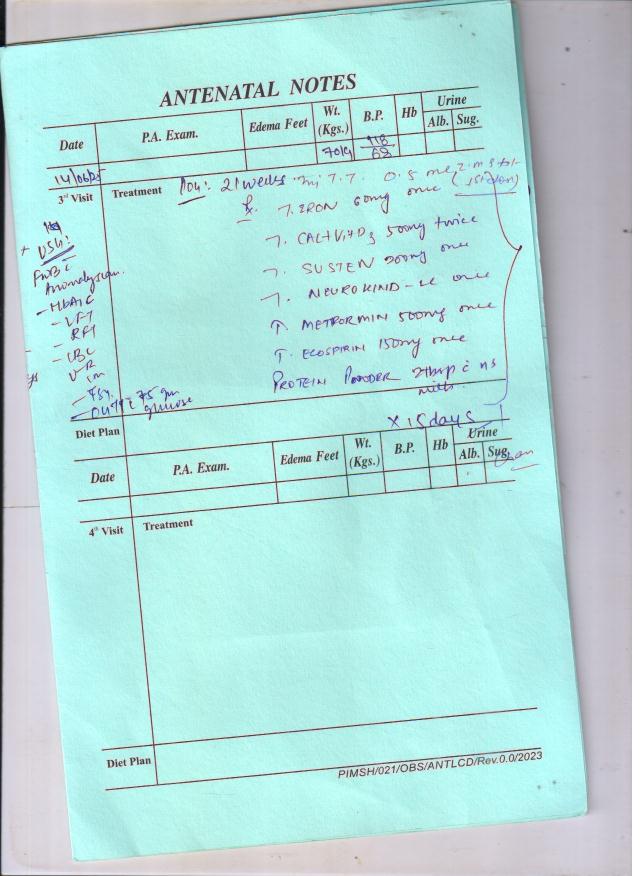 ANTENATAL NOTES
Date P.A. Exam. Edema Feet Wt. (Kgs.) B.P. Hb Urine Alb. Sug.
14/06/25 70kg 118/68
3rd Visit Treatment POG: 21 weeks Inj T.T. 0.5 ml
Rx T. IRON 60mg once
T. CAL+Vit D3 500mg twice
T. SUSTEN 200mg once
T. NEUROKIND-LC once
T. METFORMIN 500mg once
T. ECOSPIRIN 150mg once
PROTEIN POWDER 2tbsp c
milk
x 15 days
+ USG:
Anomaly scan
- HbA1C
- LFT
- RFT
- CBC
75 gm
glucose
Diet Plan
Date P.A. Exam. Edema Feet Wt. (Kgs.) B.P. Hb Urine Alb. Sug.
4th Visit Treatment
Diet Plan
PIMSH/021/OBS/ANTLCD/Rev.0.0/2023